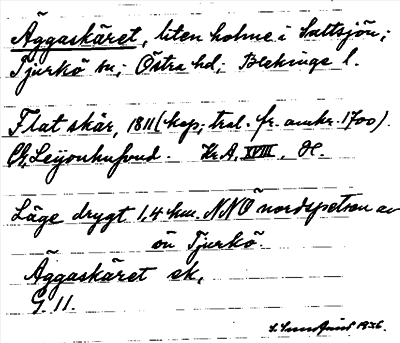 Äggaskäret, liten holme i Saltsjön;
Tjurkö sn; Östra hd; Blekinge l.
Flat skär, 1811 (kop; trol. fr. omkr. 1700).
Chr. Leijonhufvud. Kr. A, XVIII,
Läge drygt 1,4 km. NNÖ nordspetsen av
ön Tjurkö.
Äggaskäret ek,
G. 11.
1936.